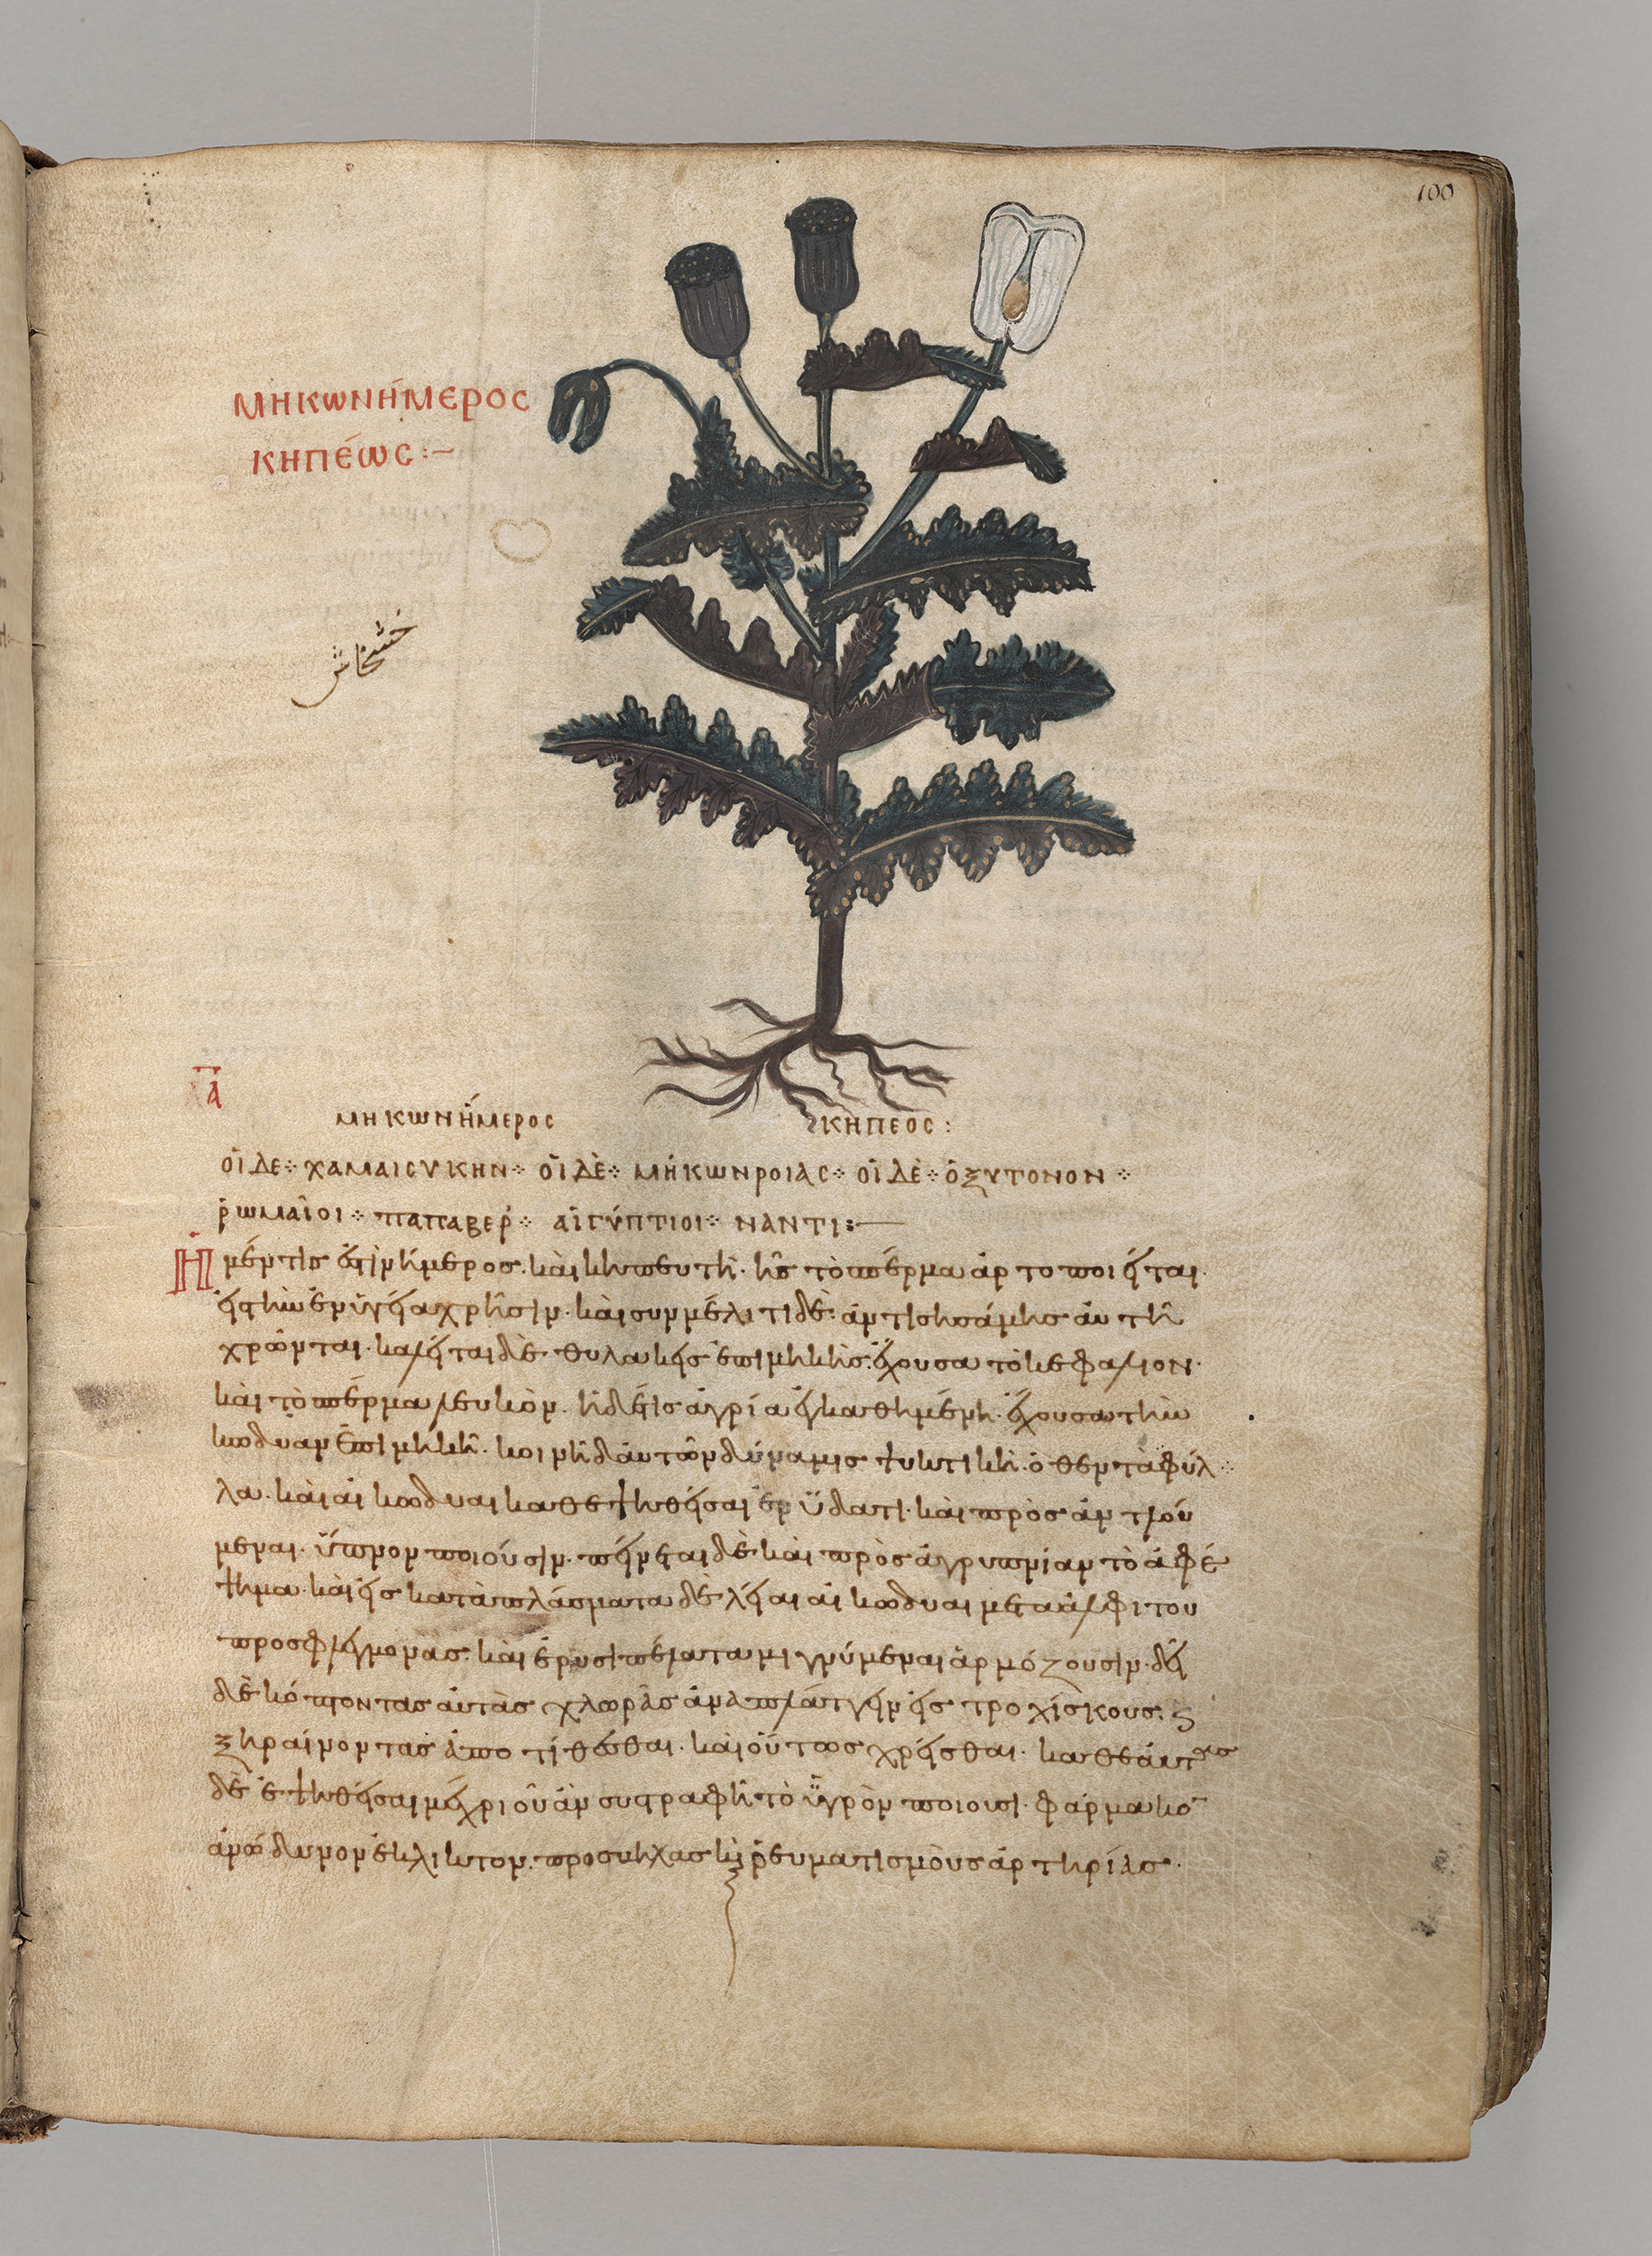 100
ΜΗΚωΝΉΜΕΡΟC
ΚΗΠΈωC:–
خشخاش
Α
ΜΗΚωΝΉΜΕΡΟC ΚΗΠΕΟC:
ΟἱΔΕ⁘ ΧΑΜΑΙCΥΚΗΝ⁘ ΟἱΔῈ⁘ ΜΉΚωΝΡΟΙΑC⁘ ΟἱΔῈ⁘ ὀΞΥΤΟΝΟΝ⁘
ῥωΜΑῖΟΙ⁘ ΠΑΠΑΒΕΡ⁘ ΑἰΓΎΠΤΙΟΙ⁘ ΝΑΝΤΙ:—
Ἡ μέν τις ἐστιν ἥμερος· καὶ κηπευτὴ· ἧς τὸ σπέρμα ἀρτοποιεῖται·
εἰς τὴν ἐν ὑγεία χρῆσιν· καὶ συν μέλιτι δὲ· ἀντι σησάμης αὐτῆ
χρῶνται· καλεῖται δὲ θυλακὶς ἐπιμήκης· ἔχουσα τὸ κεφάλιον·
καὶ τὸ σπέρμα λευκὸν· ἡ δέ τις ἀγρία ἐγκαθημένη· ἔχουσα τὴν
κωδυαν ἐπιμήκη· κοινὴ δ αὐτῶν δύναμις ψυκτικὴ· ὅθεν τὰ φύλ
λα· καὶ αἱ κωδυαι καθεψηθεῖσαι ἐν ὕδατι· καὶ προσαντλού
μεναι· ὕπνον ποιούσιν· πίνεται δὲ καὶ πρὸς ἀγρυπνίαν τὸ ἀφέ
ψημα· καὶ εἰς κατάπλάσματα δὲ λεῖαι αἱ κωδυαι μετα ἀλφιτου
προσφλεγμονας· καὶ ἐρυσιπέλατα μιγνύμεναι ἁρμόζουσιν· δεῖ
δὲ κόπτοντας αὐτὰς χλωρὰς ἀναπλάττειν εἰς τροχίσκους· ϛ
ξηραίνοντας ἀποτίθεσθαι· καὶ οὕτως χρεῖσθαι· καθ εαυτ
δὲ ἑψηθεῖσαι μέχρι οὗ ἂν συστραφῆ τὸ ὑγρὸν ποιουσι φάρμακο
ἀνώδυνον ἐκλικτον· πρὸς βῆχας κ ρευματισμοὺς ἀρτηρίας·